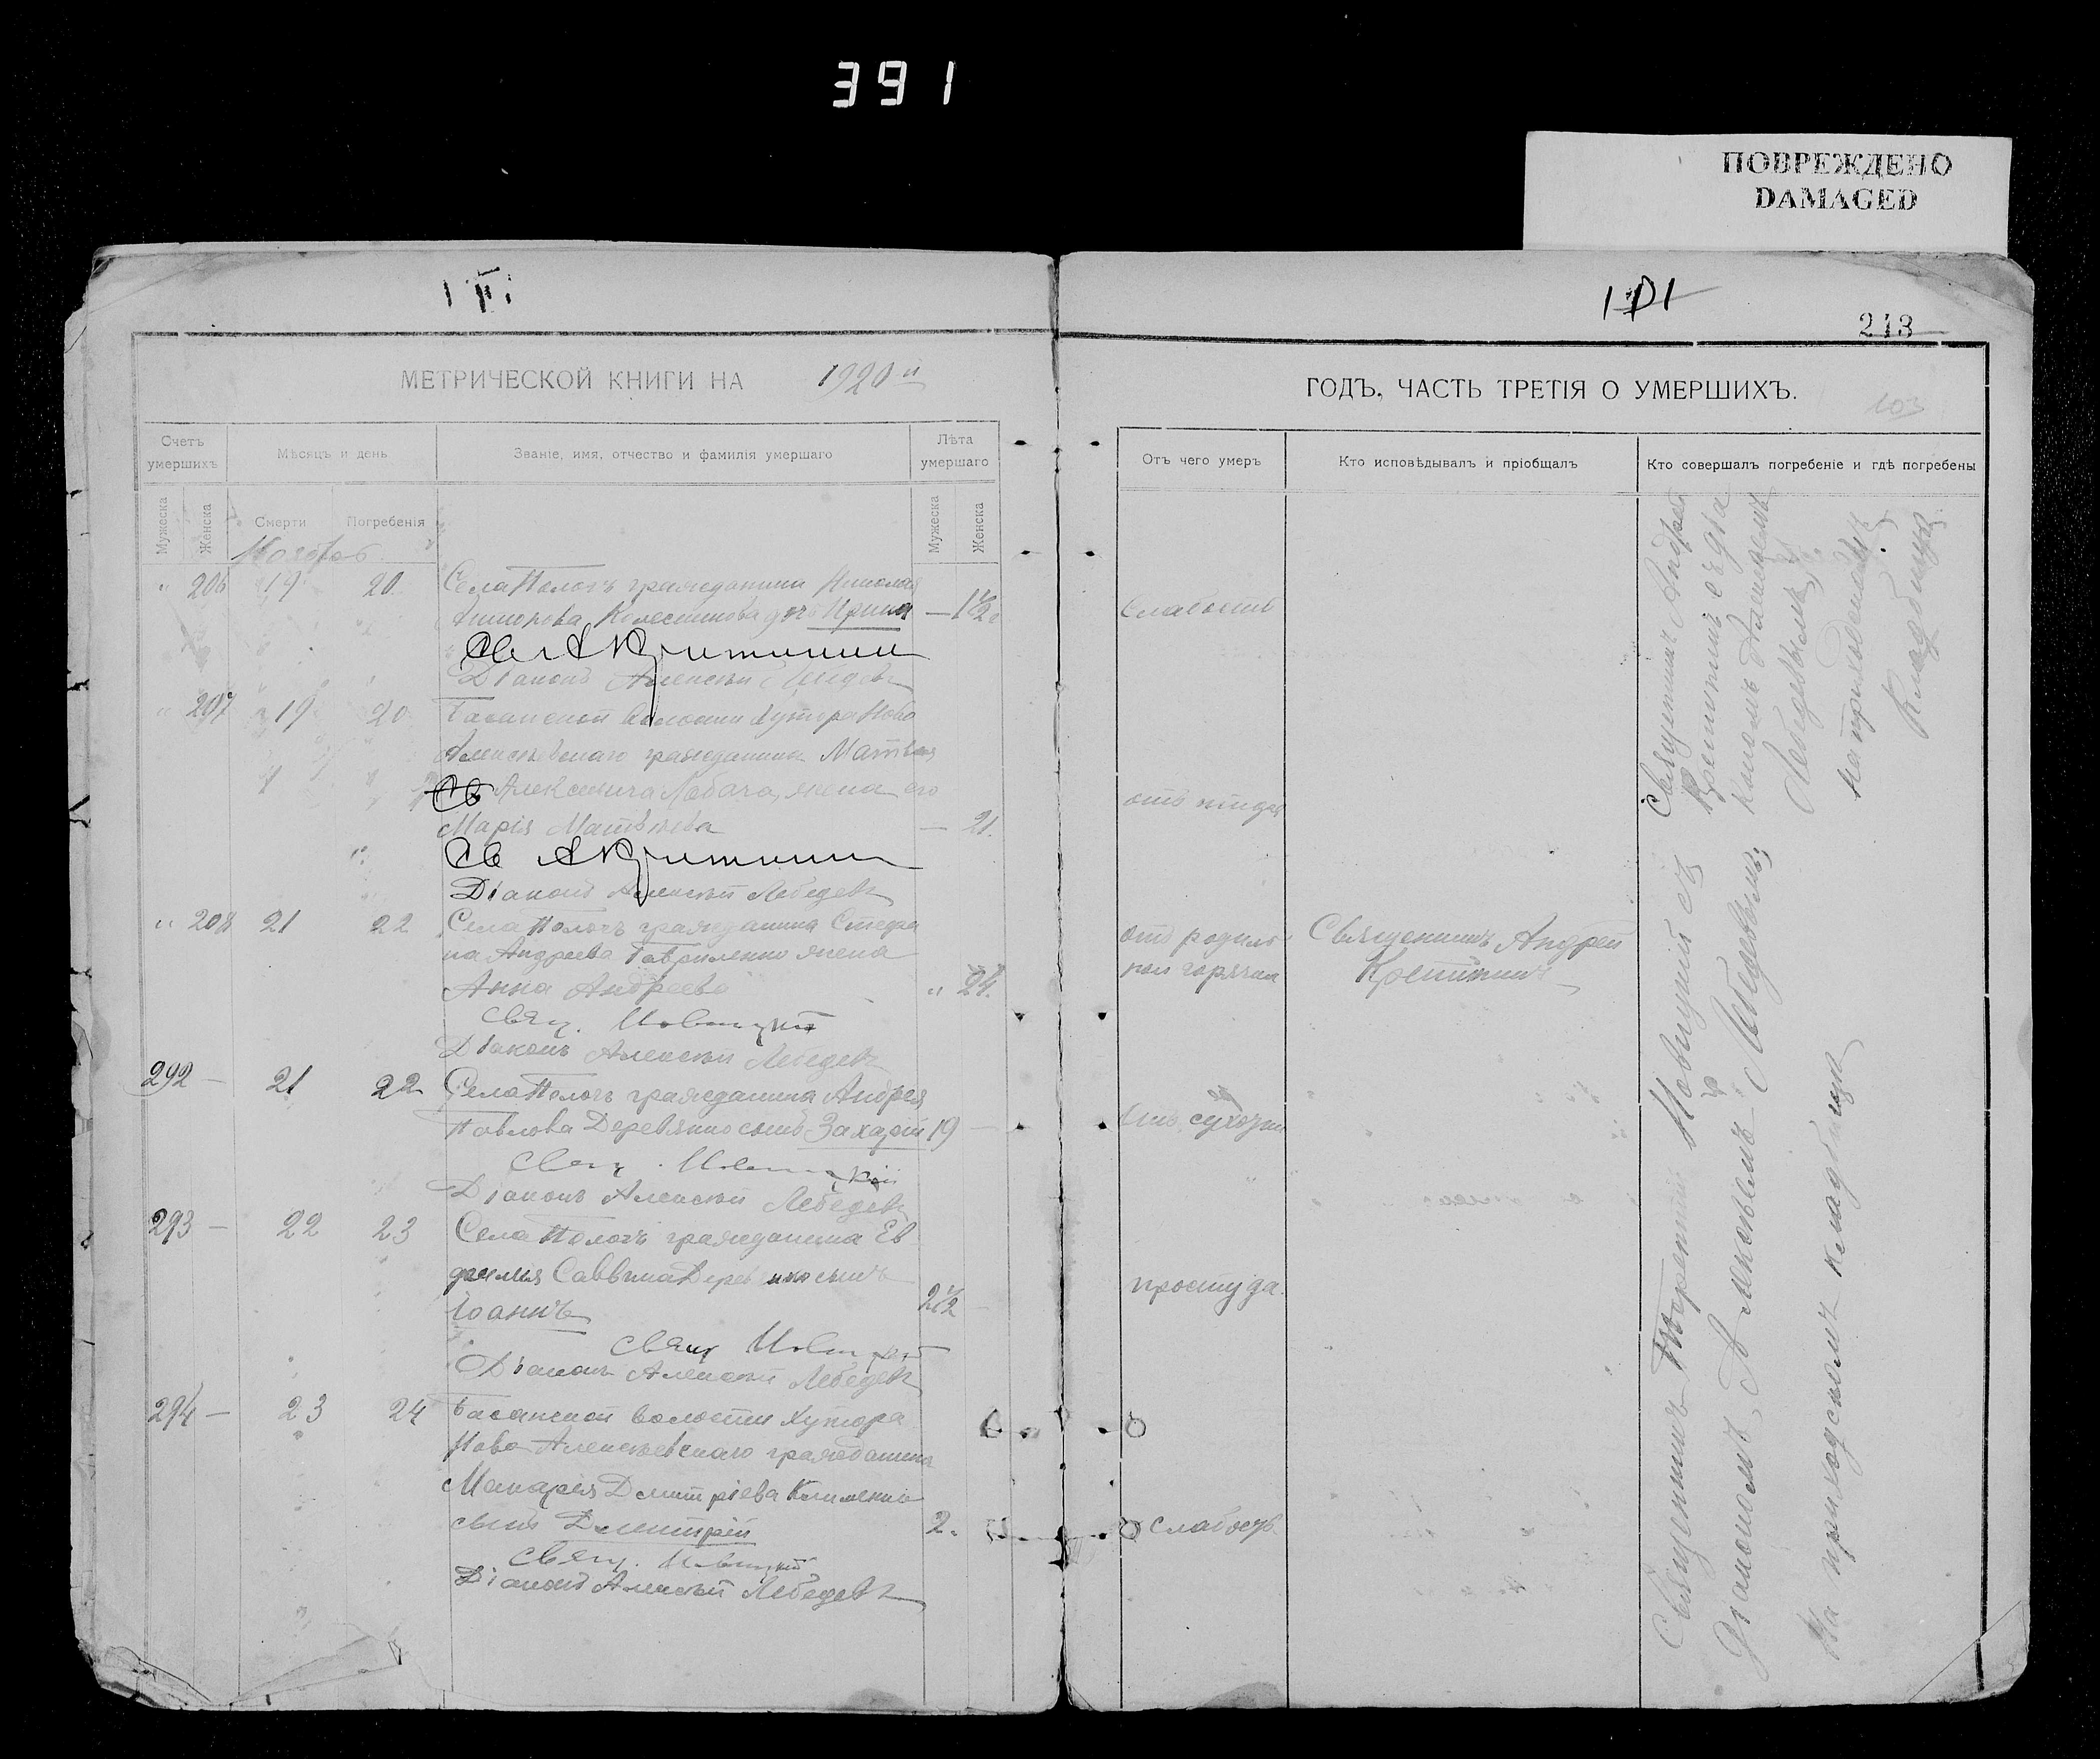 391
ПОВРЕЖДЕНО
DAMAGED
213
103
МЕТРИЧЕСКОЙ КНИГИ НА 1920й
ГОДЪ, ЧАСТЬ ТРЕТІЯ О УМЕРШИХЪ.
Счетъ умершихъ
Мѣсяцъ и день
Званіе, имя, отчество и фамилія умершаго
Лѣта умершаго
Мужеска
Женска
Смерти
Погребенія
Мужеска
Женска
Отъ чего умеръ
Кто исповѣдывалъ и пріобщалъ
Кто совершалъ погребеніе и гдѣ погребены
Ноябрь
" 206 19 20 Села Пологъ гражданина Николая
Колесникова дочь Ирина — 1½
Слабость
Діаконъ Алексѣй Лебедевъ
" 207 19 20 Басанской волости хутора Ново
Алексѣевскаго гражданина Матвѣя
Св Алексѣевича Лобача, жена его
Марія Матвѣева — 21.
отъ
Діаконъ Алексѣй Лебедевъ
" 208 21 22 Села Пологъ гражданина Стефа
на Андреева Гавриленко жена
Анна Андреева " 24.
отъ родиль
ной горячки
Священникъ Андрей
Свящ. Новицкій
Діаконъ Алексѣй Лебедевъ
292 — 21 22 Села Пологъ гражданина Андрея
Павлова Деревянко сынъ Захарій 19 —
Свящ. Новицкій
Діаконъ Алексѣй Лебедевъ
293 — 22 23 Села Пологъ гражданина Ев
Саввина сынъ
Іоаннъ 2½ —
простуда.
Свящ Новицкій
Діаконъ Алексѣй Лебедевъ
294 — 23 24 Басанской волости хутора
Ново-Алексѣевскаго гражданина
Макарія Дмитріева Клименко
сынъ Димитрій 2.
слабость
Свящ. Новицкій
Діаконъ Алексѣй Лебедевъ
Священникъ Андрей
съ діа
кономъ Алексѣемъ
Лебедевымъ
на приходскомъ
кладбищѣ
Священникъ Терентій Новицкій съ
діакономъ Алексѣемъ Лебедевымъ,
На приходскомъ кладбищѣ